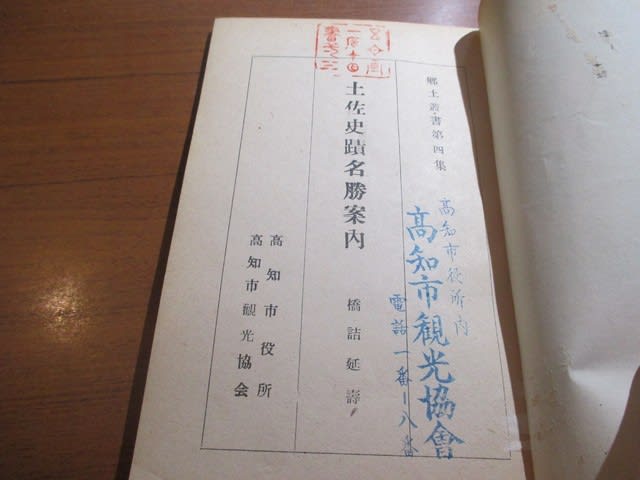 郷土叢書第四集
高知市役所内
高知市観光協會
電話一番ー八番
土佐史蹟名勝案内
橋詰延壽
高知市役所
高知市観光協会